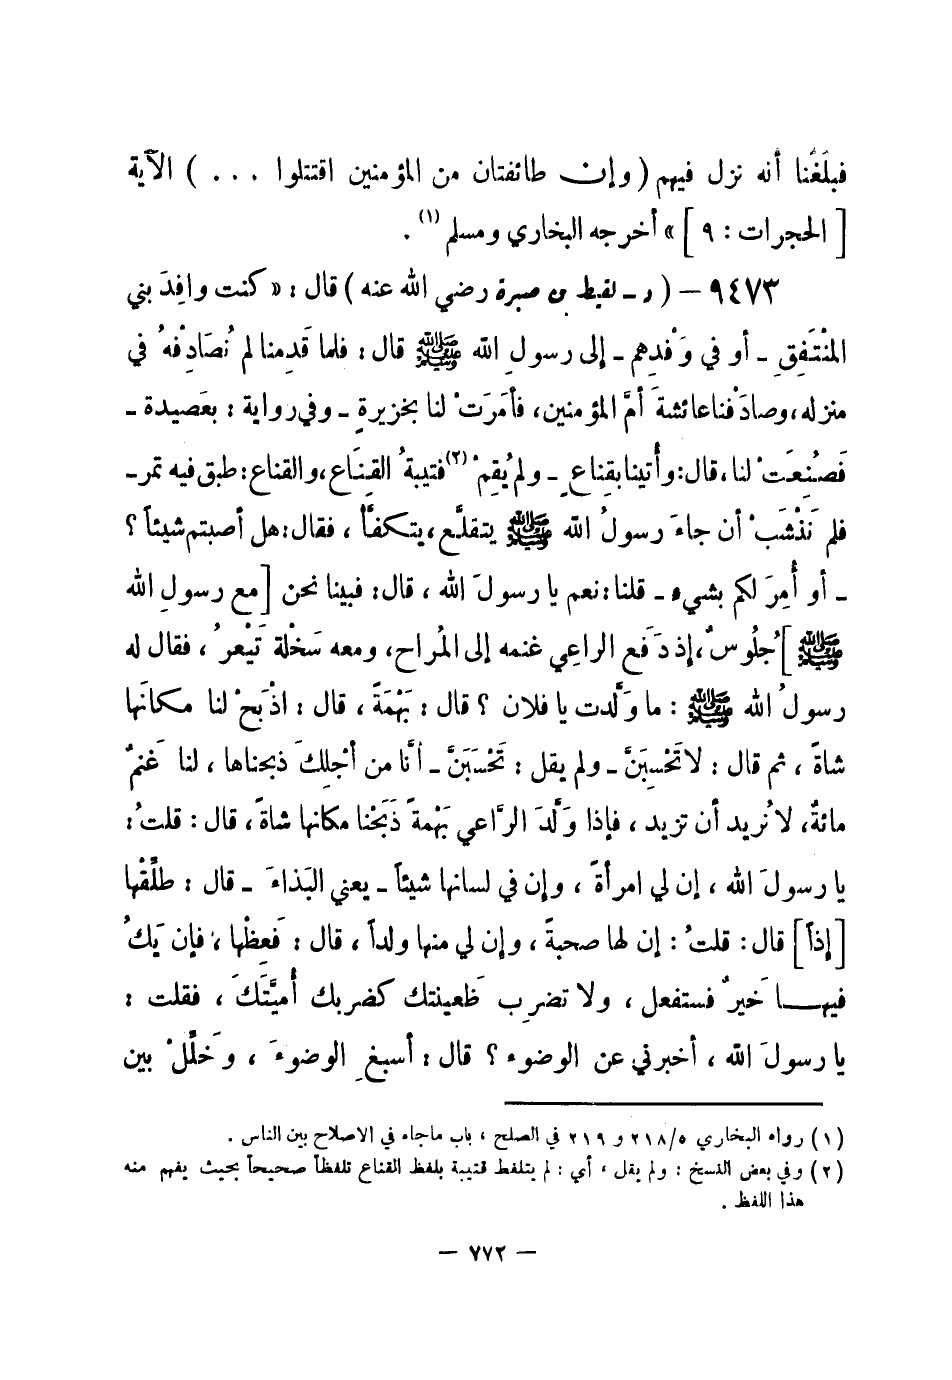 فبلَغَنا أنه نزل فيهم ( وإن طائفتان من المؤمنين اقتتلوا . . . ) الآية
[ الحجرات : ٩ ] » أخرجه البخاري ومسلم (١) .
٩٤٧٣ – ( د ـ لقيط بن صبرة رضي الله عنه ) قال : « كنت وافِدَ بني
المنْتَفِقِ ـ أو في وَفْدِهم ـ إلى رسولِ الله ﷺ قال : فلما قَدِمنا لم نُصَادِفْهُ في
منزله ، وصادَفْنا عائشةَ أمَّ المؤمنين ، فأمَرَتْ لنا بخزيرةٍ ـ وفي رواية : بعَصيدة ـ
فَصُنِعَتْ لنا ، قال : وأُتينا بقِناعٍ ـ ولم يُقِمْ (٢) قتيبةُ القِنَاع ، والقناع : طبق فيه تمر ـ
فلم نَنْشَبْ أن جاءَ رسولُ الله ﷺ يتقلَّع ، يتكفَّأُ ، فقال : هل أصبتم شيئاً ؟
ـ أو أُمِرَ لكم بشيء ـ قلنا : نعم يا رسولَ الله ، قال : فبينا نحن [ مع رسولِ الله
ﷺ ] جُلُوسٌ ، إذ دَفَع الراعِي غنمه إلى المُراح ، ومعه سَخْلة تَيْعرُ ، فقال له
رسولُ الله ﷺ : ما وَلَّدت يا فلان ؟ قال : بَهْمَةً ، قال : اذْبَحْ لنا مكانَها
شاةً ، ثم قال : لا تَحْسِبَنَّ ـ ولم يقل : تَحْسَبَنَّ ـ أنَّا من أجْلِكَ ذبحناها ، لنا غَنمٌ
مائةٌ ، لا نُريد أن تزيد ، فإذا وَلَّدَ الرَّاعي بَهْمةً ذَبَحْنا مكانها شاةً ، قال : قلتُ :
يا رسولَ الله ، إن لي امرأةً ، وإن في لسانها شيئاً ـ يعني البَذاءَ ـ قال : طلِّقْها
[ إذاً ] قال : قلتُ : إن لها صحبةً ، وإن لي منها ولداً ، قال : فَعِظْها ، فإن يَكُ
فيهـــا خَيرٌ فستفعل ، ولا تضرِب ظَعينتك كضربك أُمَيَّتَكَ ، فقلت :
يا رسولَ الله ، أخبرني عن الوضوء ؟ قال : أسبغِ الوضوءَ ، وَخلِّلْ بين
(١) رواه البخاري ٢١٨/٥ و ٢١٩ في الصلح ، باب ماجاء في الاصلاح بين الناس .
(٢) وفي بعض النسخ : ولم يقل ، أي : لم يتلفظ قتيبة بلفظ القناع تلفظاً صحيحاً بحيث يفهم منه
هذا اللفظ .
– ٧٧٢ –